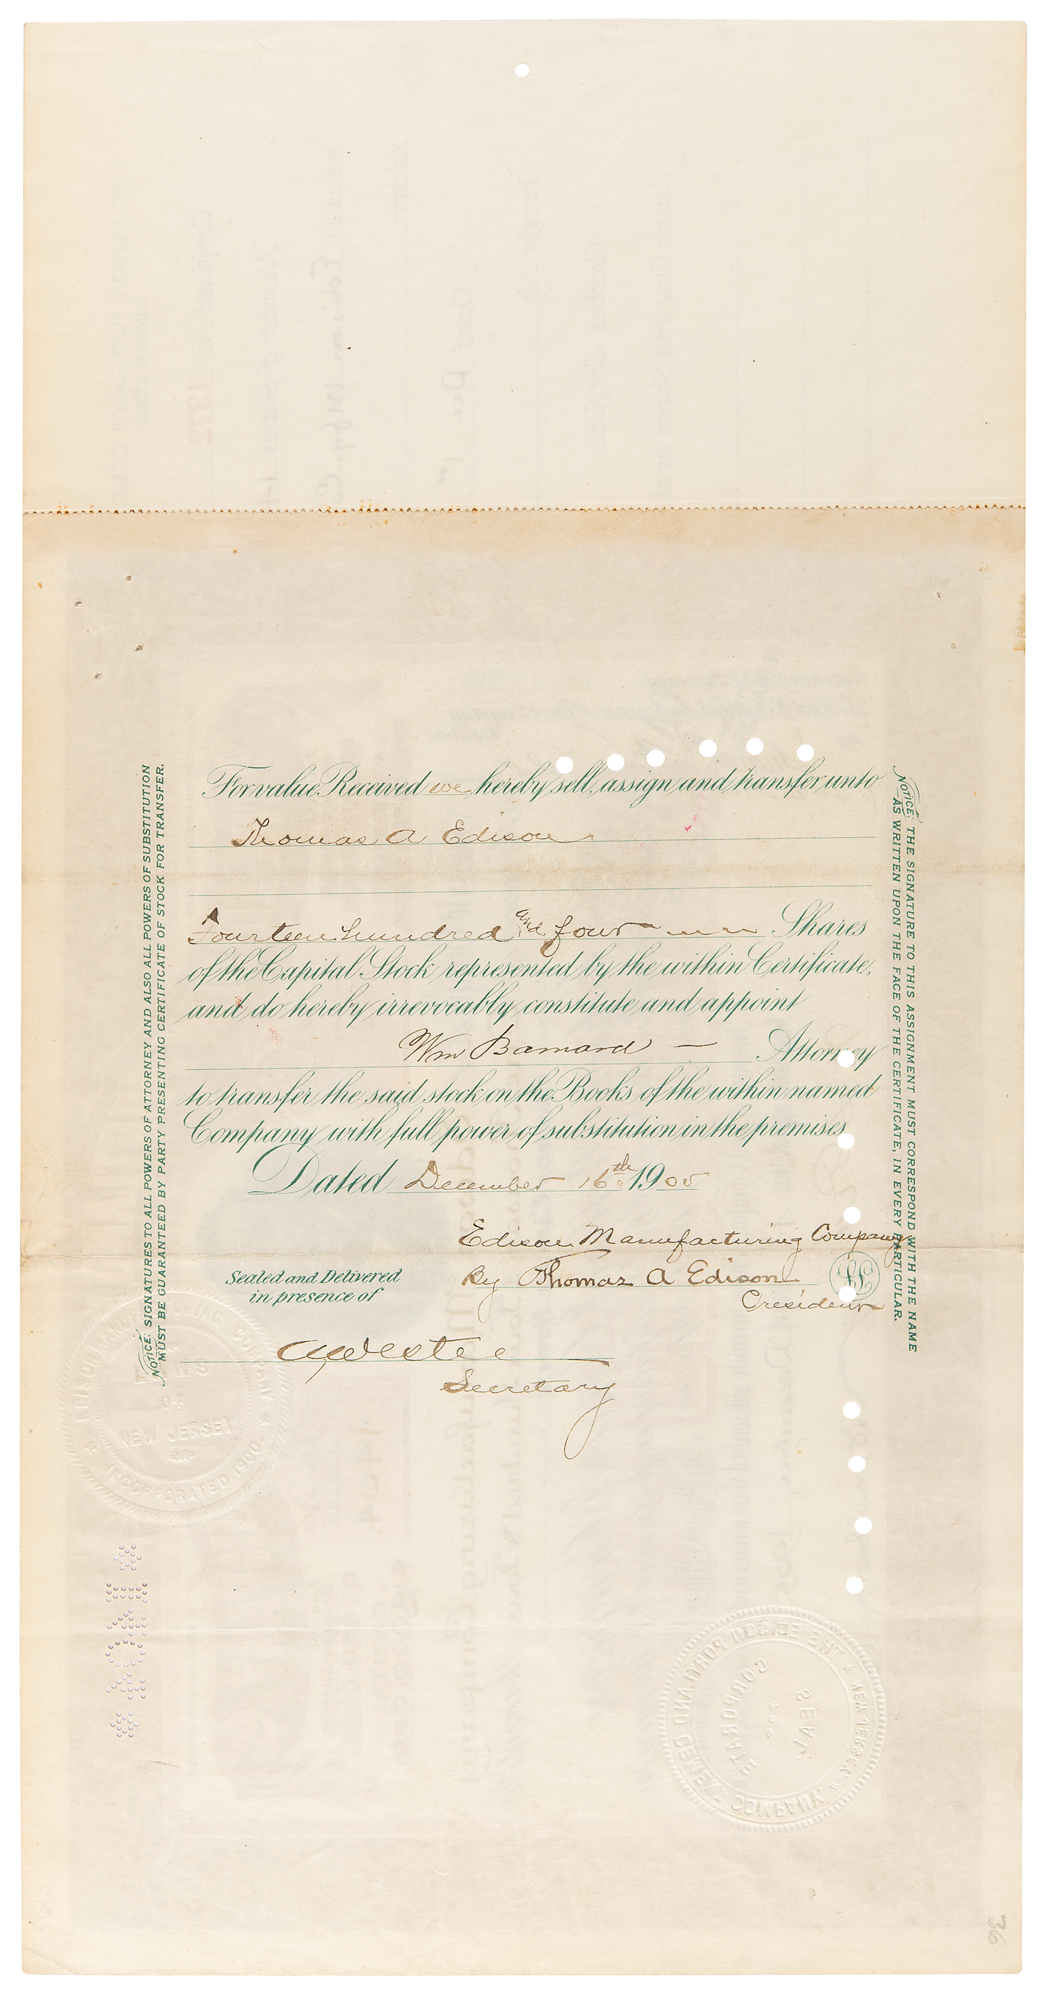 For value Received we hereby sell, assign and transfer, unto
Thomas A Edison
Fourteen hundred and four Shares
of the Capital Stock represented by the within Certificate,
and do hereby irrevocably constitute and appoint
Wm Barnard — Attorney
to transfer the said stock on the Books of the within named
Company with full power of substitution in the premises
Dated December 16th 1905
Edison Manufacturing Company
By Thomas A Edison
President
Sealed and Delivered
in presence of
Secretary
NOTICE: SIGNATURES TO ALL POWERS OF ATTORNEY AND ALSO ALL POWERS OF SUBSTITUTION
MUST BE GUARANTEED BY PARTY PRESENTING CERTIFICATE OF STOCK FOR TRANSFER.
NOTICE: THE SIGNATURE TO THIS ASSIGNMENT MUST CORRESPOND WITH THE NAME
AS WRITTEN UPON THE FACE OF THE CERTIFICATE, IN EVERY PARTICULAR.
NEW JERSEY
INCORPORATED 1900
* 1404 *
THE EDISON PORTLAND CEMENT COMPANY * NEW JERSEY *
CORPORATE
SEAL
36